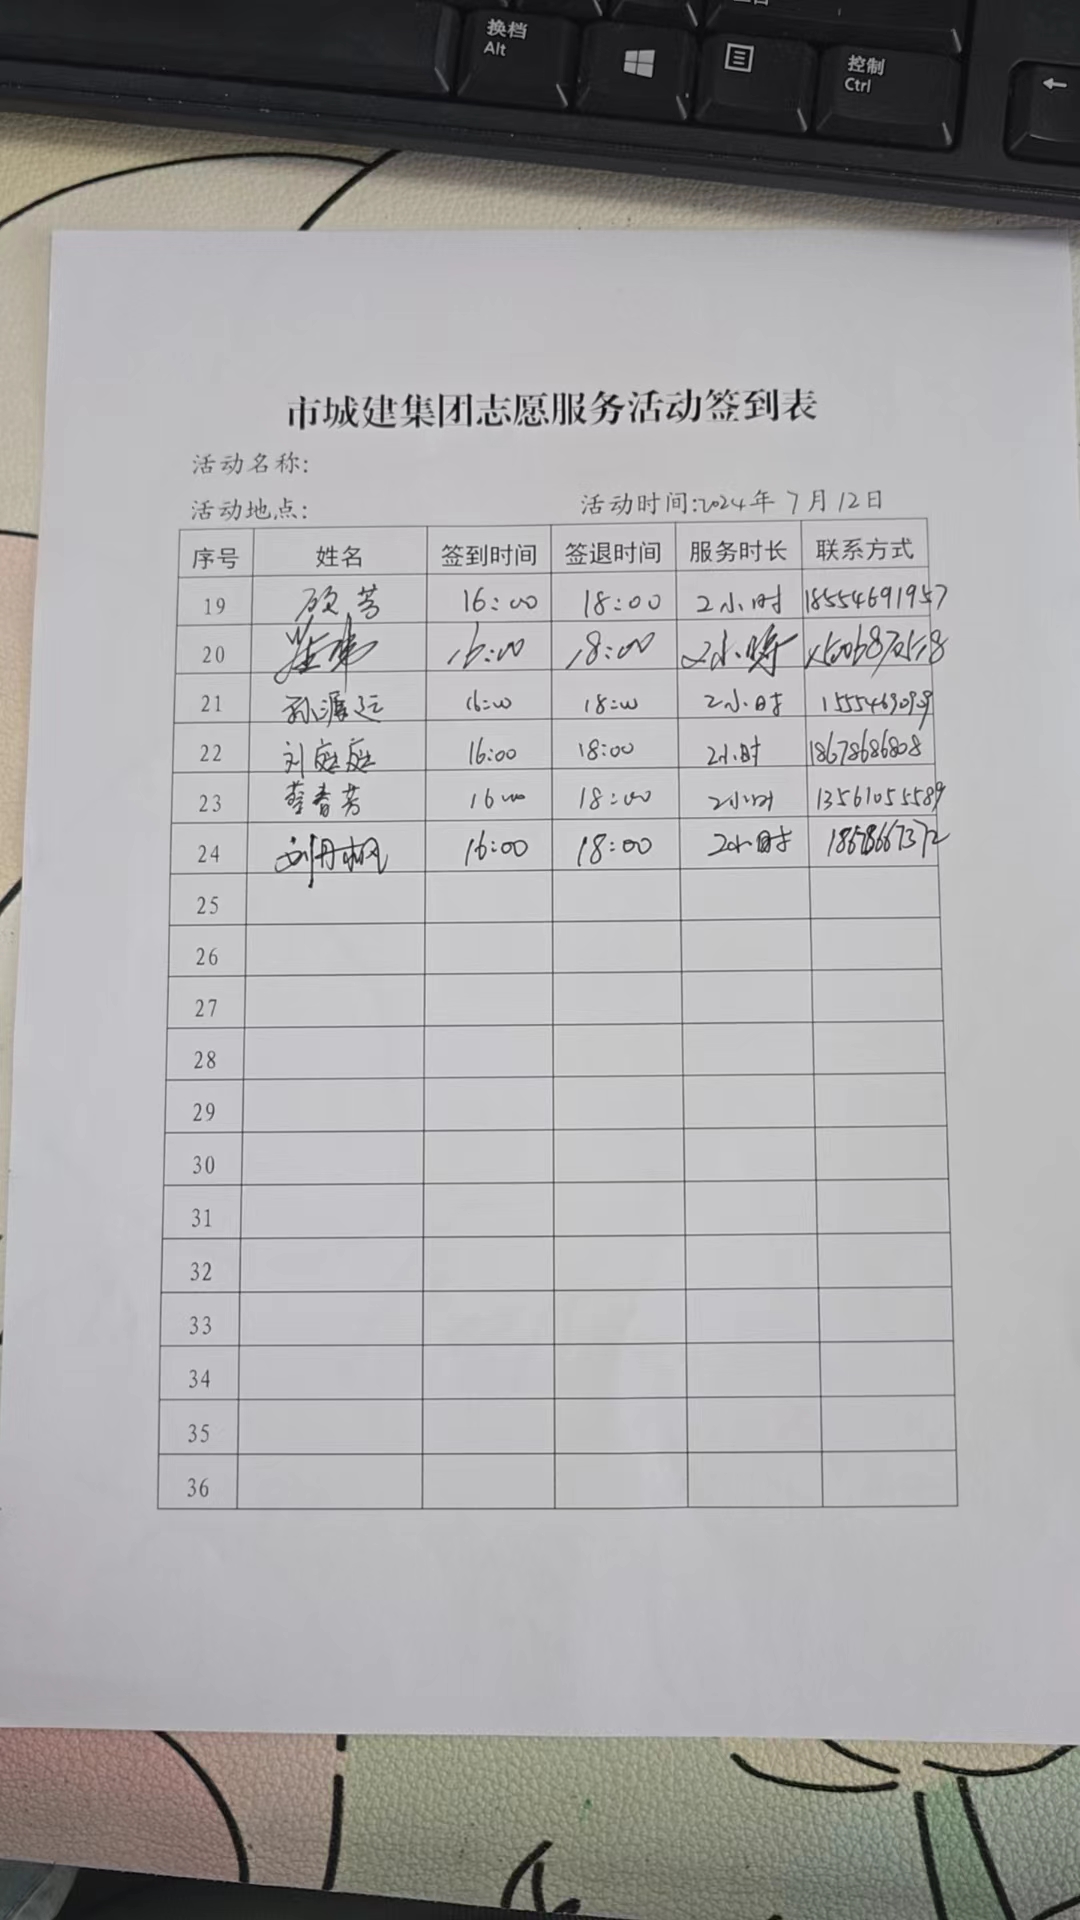 换档
Alt
控制
Ctrl
←
市城建集团志愿服务活动签到表
活动名称:
活动地点: 活动时间:2024年 7月12日
序号 姓名 签到时间 签退时间 服务时长 联系方式
19 顾芳 16:00 18:00 2小时 18554691957
20 16:00 18:00 2小时
21 16:00 18:00 2小时
22 刘庭庭 16:00 18:00 2小时 18678686808
23 蔡春芳 16:00 18:00 2小时 13561055589
24 刘丹枫 16:00 18:00 2小时
25
26
27
28
29
30
31
32
33
34
35
36